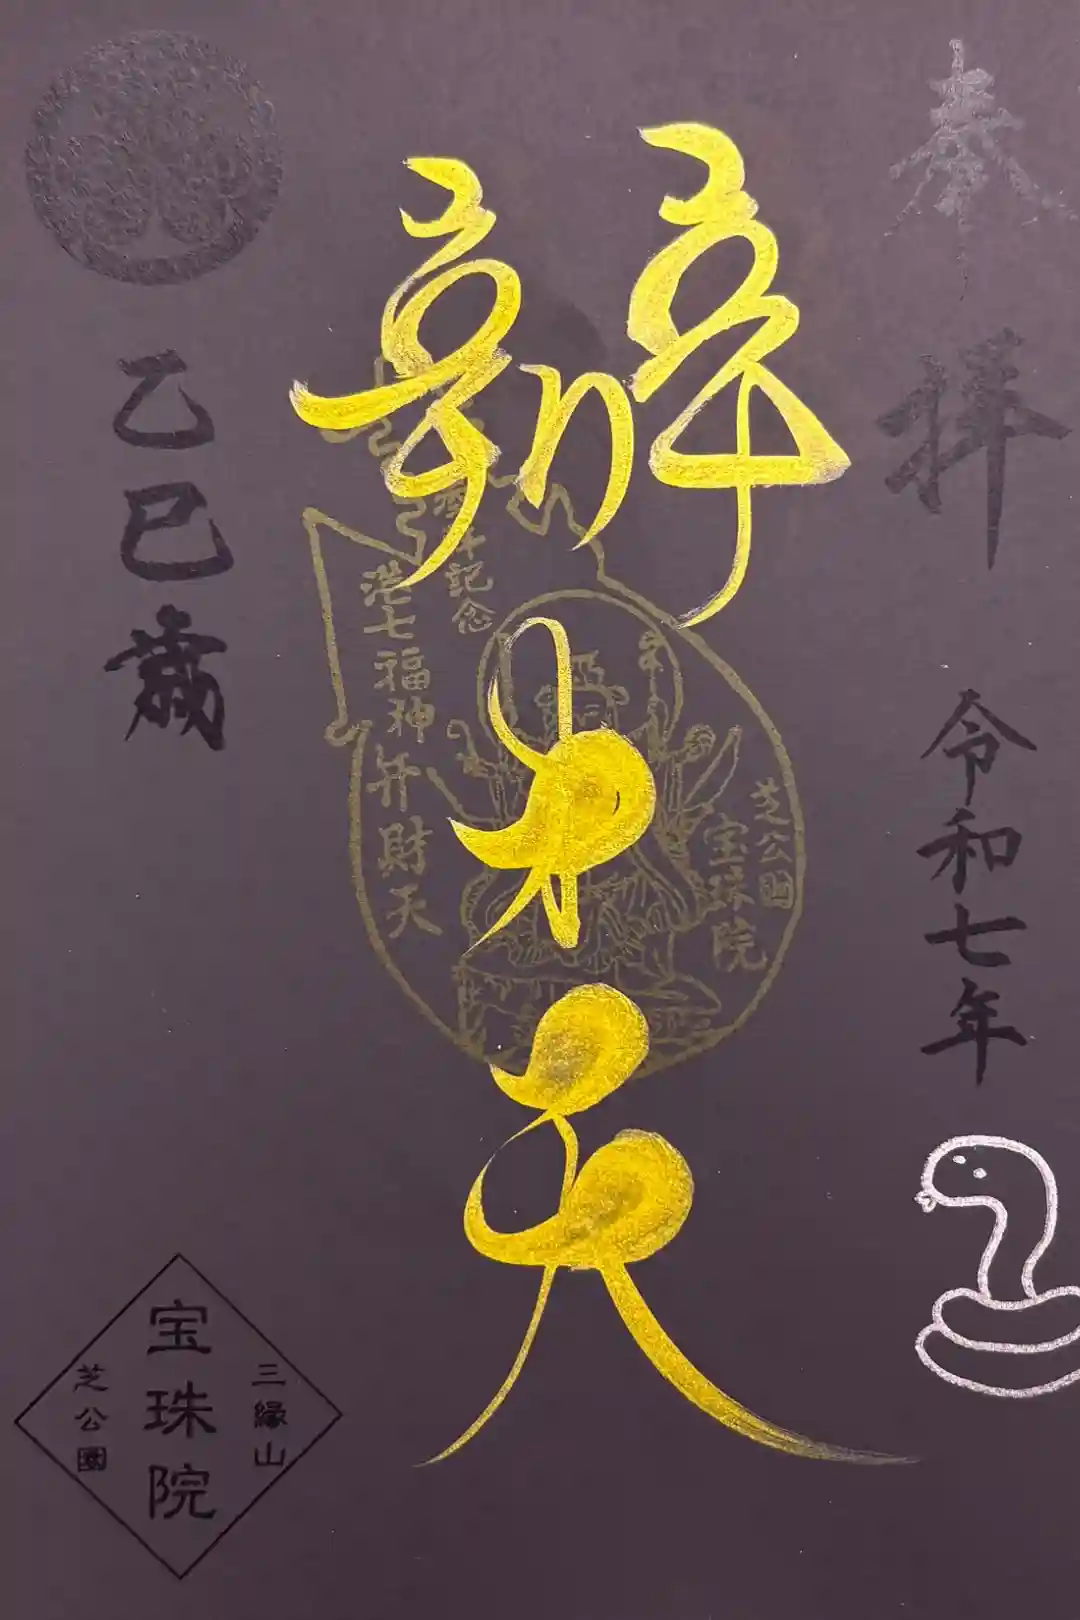 奉拝
令和七年
辯才天
芝公園
宝珠院
港七福神弁財天
乙巳歳
三縁山
宝珠院
芝公園